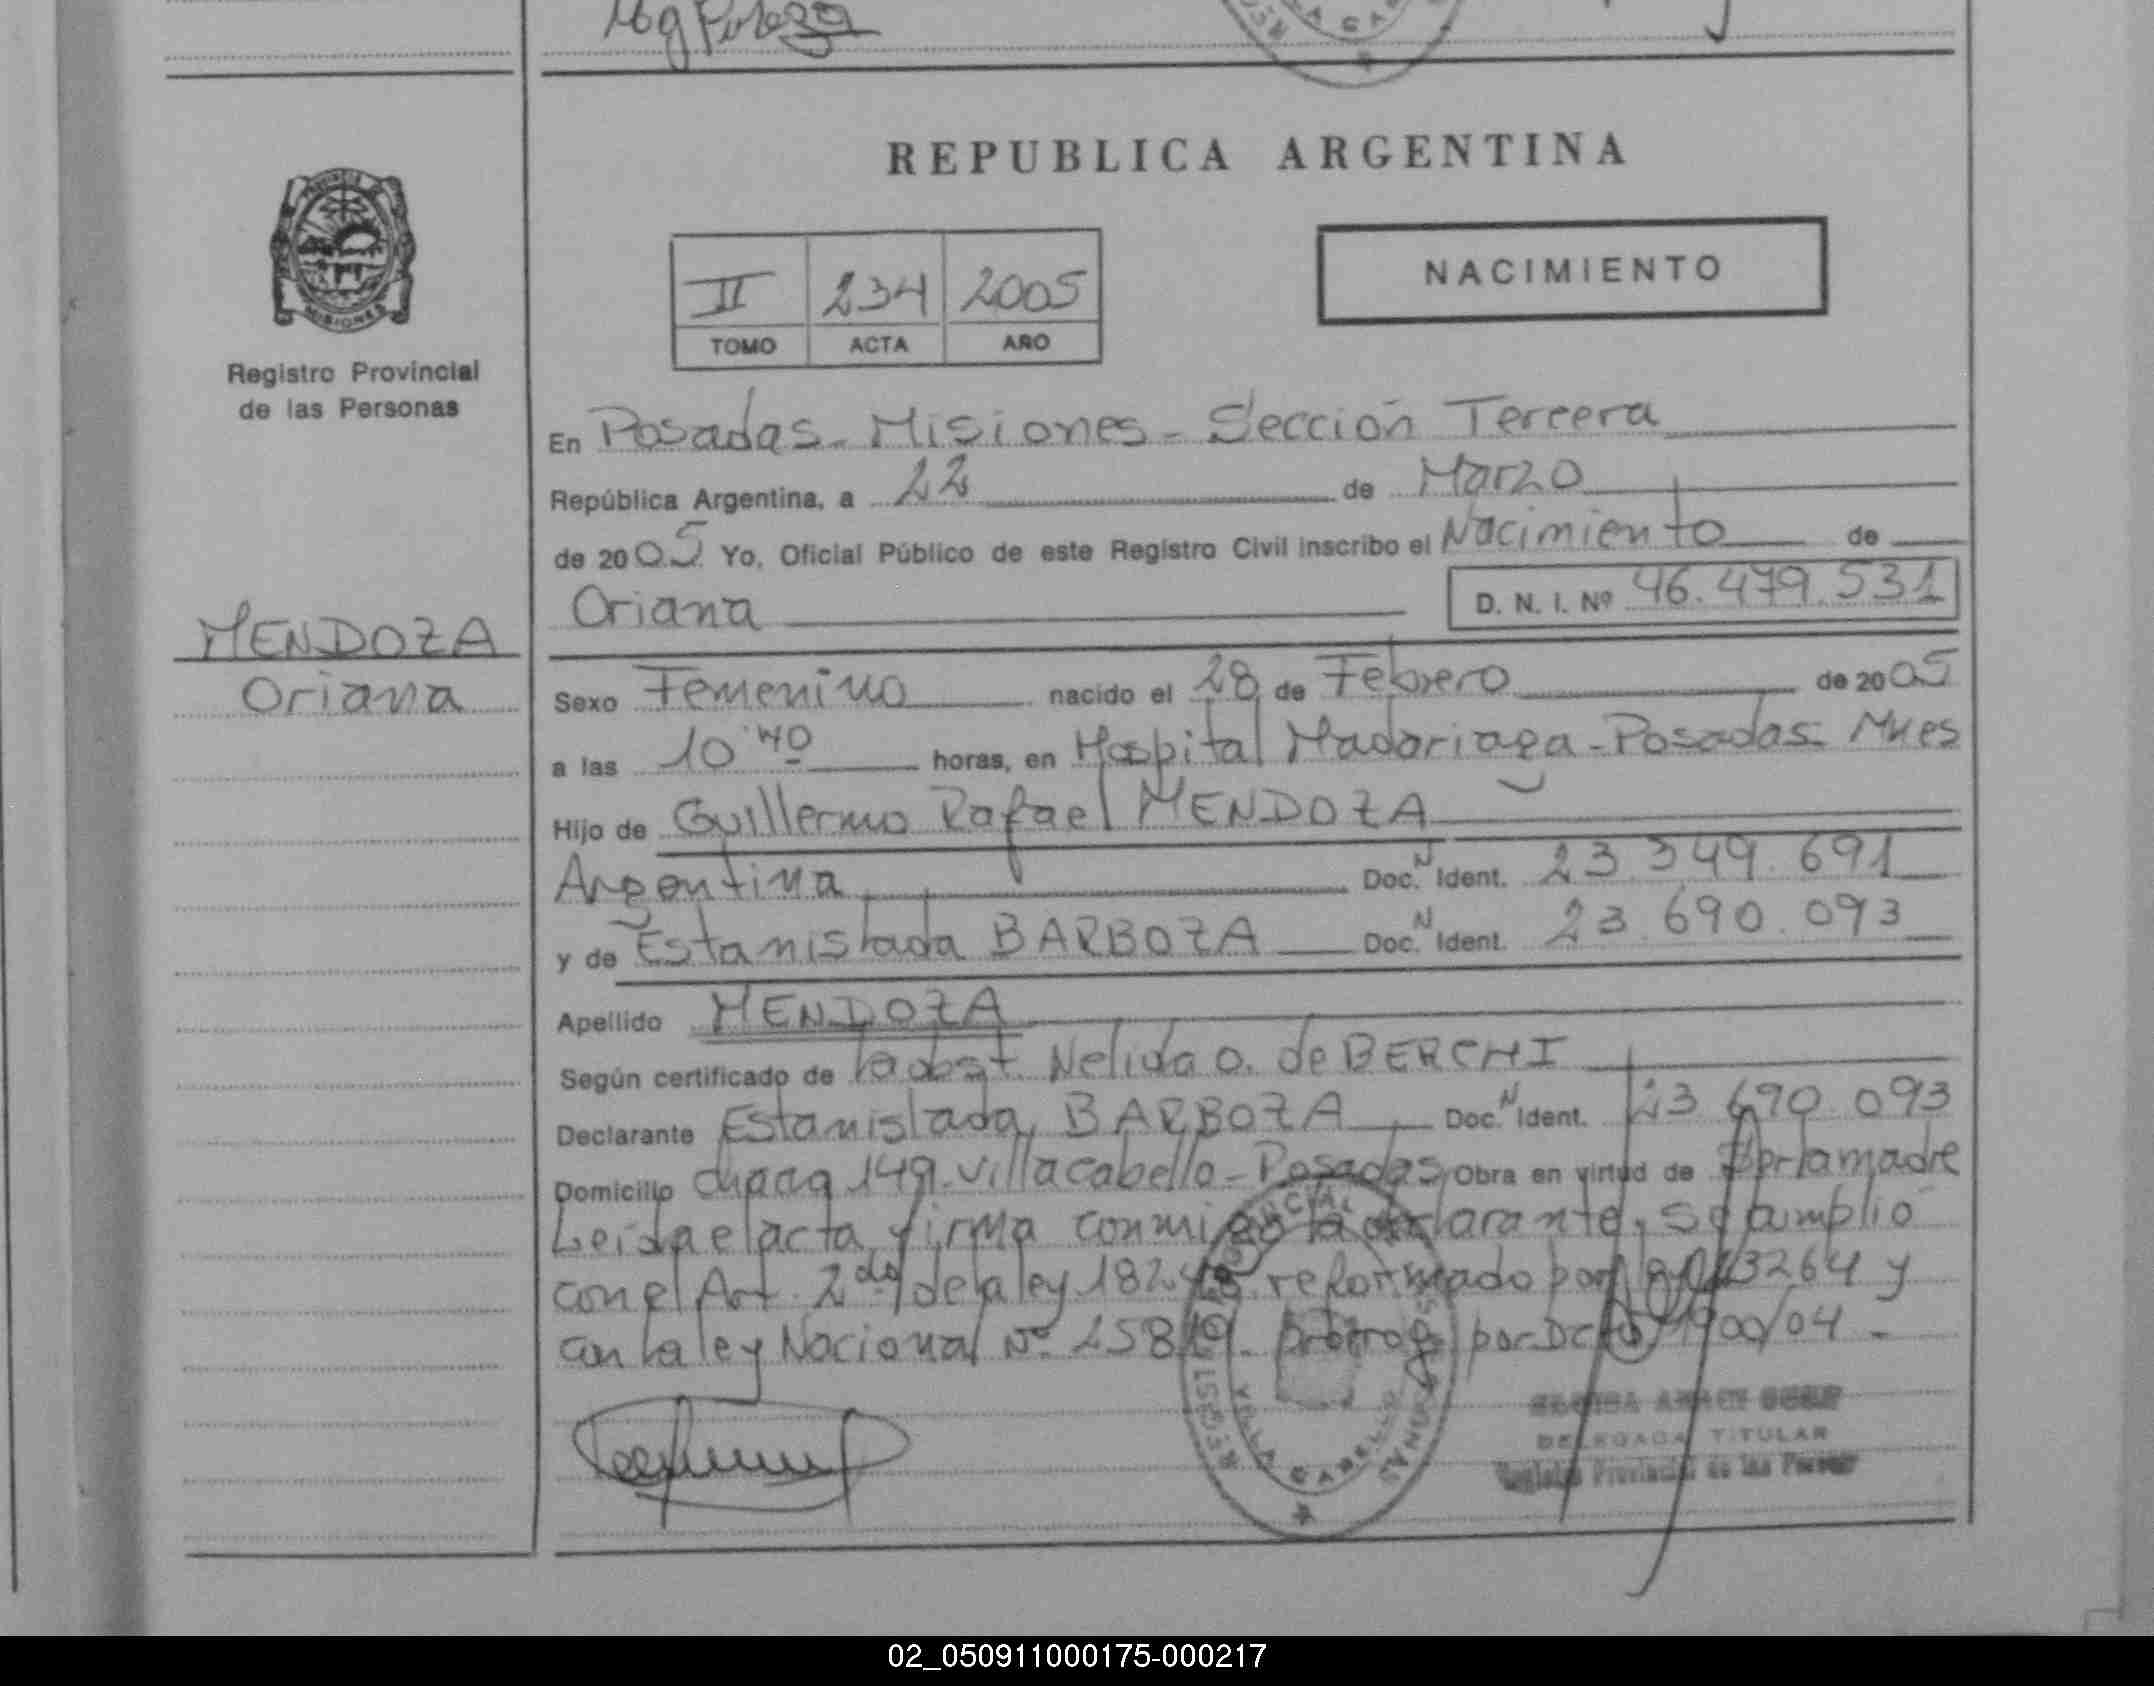 REPUBLICA ARGENTINA
PROVINCIA DE
MISIONES
Registro Provincial
de las Personas
II 234 2005
TOMO ACTA AÑO
NACIMIENTO
En Posadas - Misiones - Sección Tercera
República Argentina, a 22 de Marzo
de 2005 Yo, Oficial Público de este Registro Civil inscribo el Nacimiento de
Oriana D. N. I. Nº 46.479.531
MENDOZA
Oriana
Sexo Femenino nacido el 28 de Febrero de 2005
a las 10 40 horas, en Hospital Madariaga - Posadas - Mnes
Hijo de Guillermo Rafael MENDOZA
Argentina Doc. N Ident. 23.349.691
y de Estanislada BARBOZA Doc. N Ident. 23.690.093
Apellido MENDOZA
Según certificado de la obst. Nelida O. de BERCHI
Declarante Estanislada BARBOZA Doc. N Ident. 23.690.093
Domicilio chacra 149 - Villa Cabello - Posadas Obra en virtud de ser la madre
Leida el acta, firma conmigo la declarante, se amplió
con el Art. 2do de la ley 18248 reformado por 23264 y
con la ley Nacional Nº 25819 - por Dcto 1900/04 -
VILLA CABELLO
DELEGADA TITULAR
Registro Provincial de las Personas
02_050911000175-000217